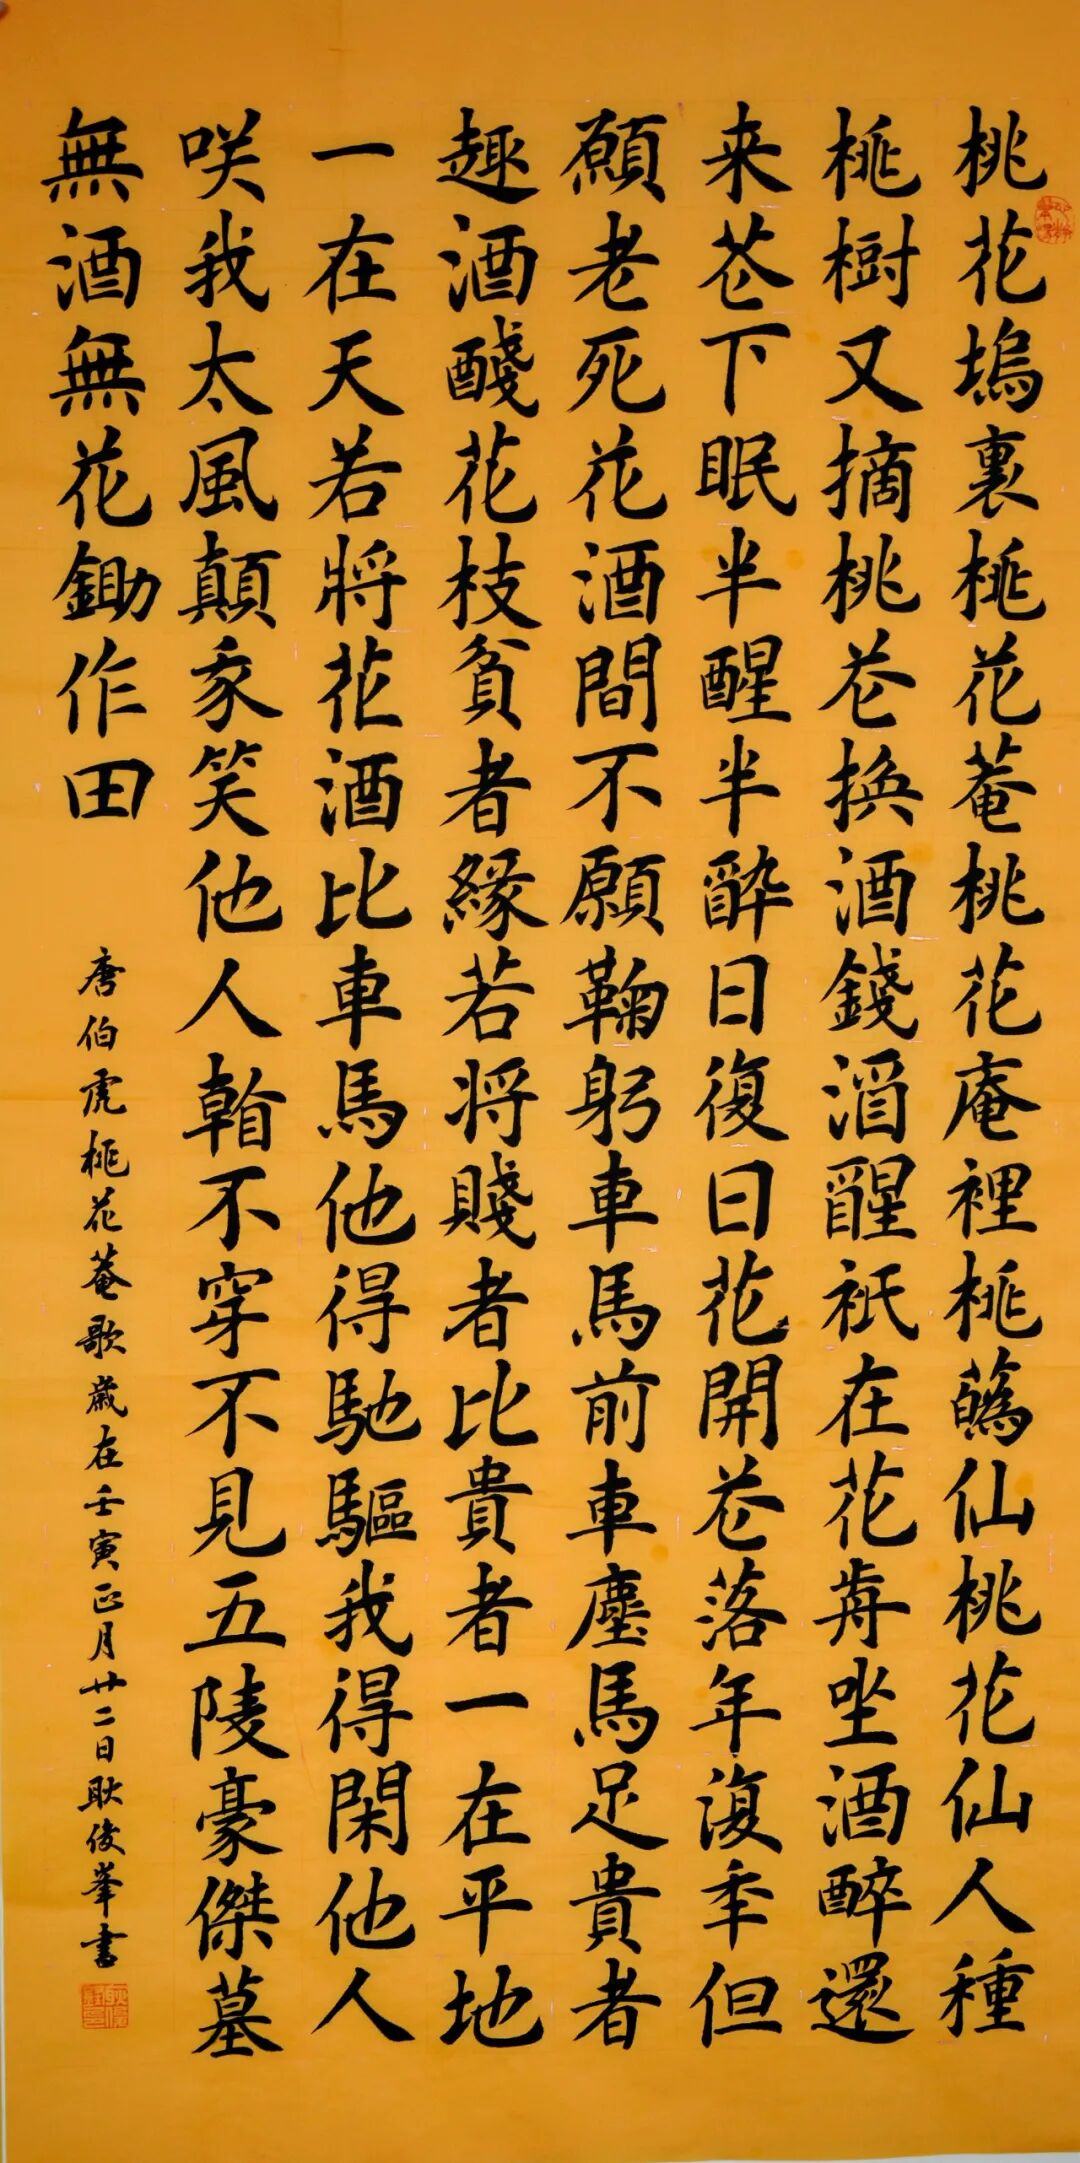 桃花塢裏桃花菴桃花庵裡桃蘤仙桃花仙人種
桃樹又摘桃苍換酒錢酒醒衹在花歬坐酒醉還
来苍下眠半醒半醉日復日花開苍落年復秊但
願老死花酒間不願鞠躬車馬前車塵馬足貴者
趣酒醆花枝貧者緣若将賤者比貴者一在平地
一在天若將花酒比車馬他得馳驅我得閑他人
咲我太風顛我笑他人㪳不穿不見五陵豪傑墓
無酒無花鋤作田
唐伯虎桃花菴歌歲在壬寅正月廿二日耿俊峯書